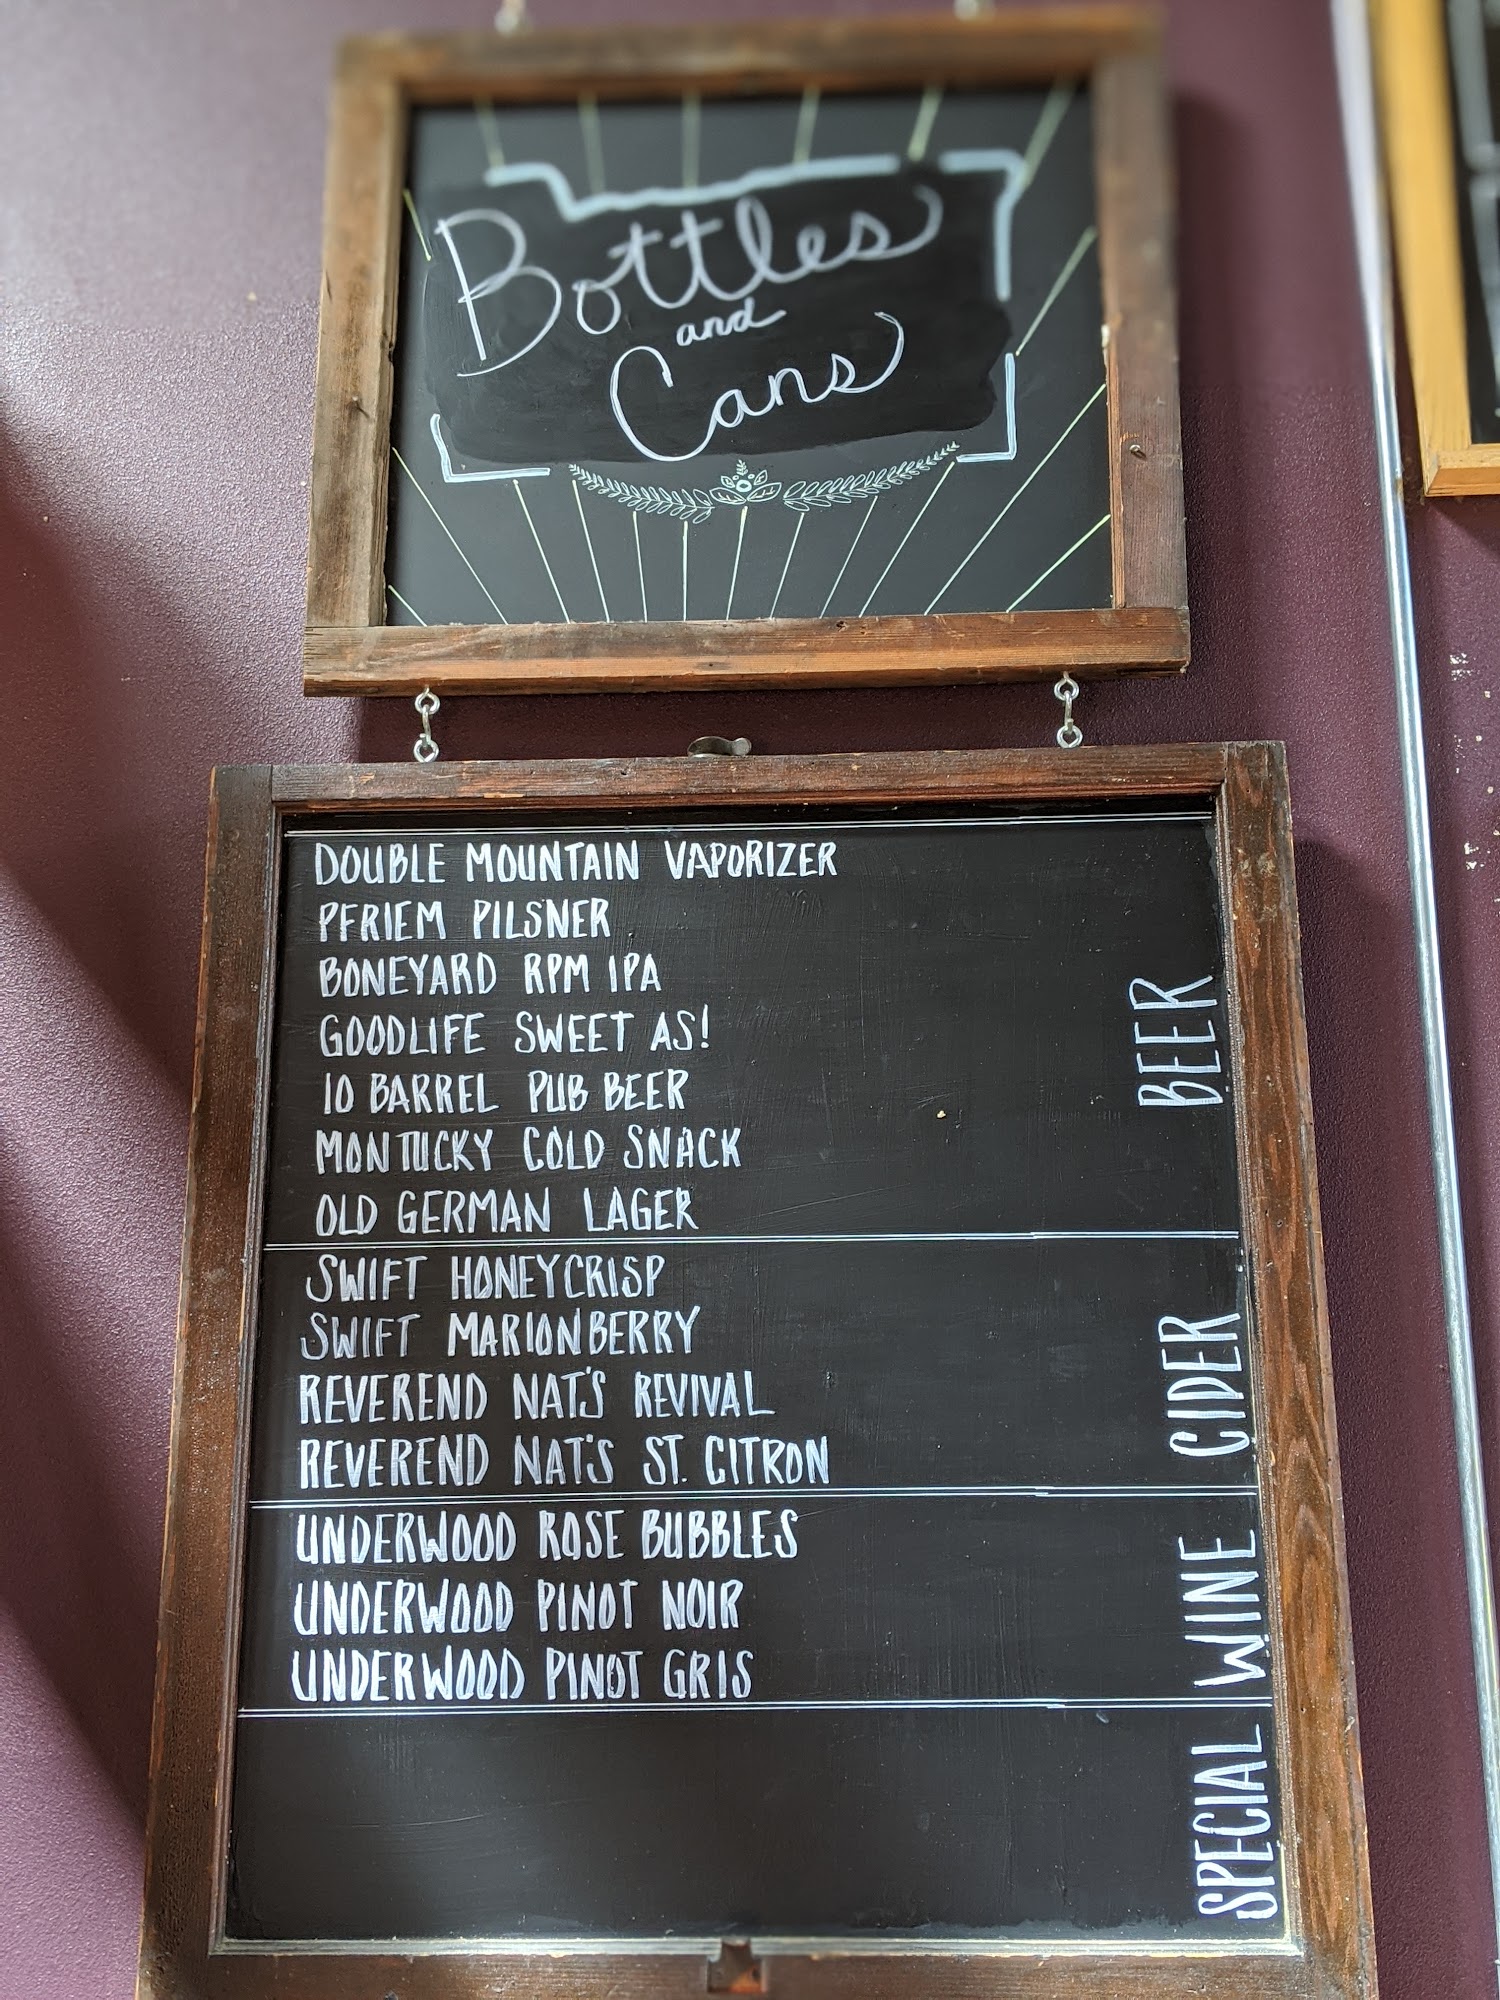 Bottles
and
Cans
DOUBLE MOUNTAIN VAPORIZER
PFRIEM PILSNER
BONEYARD RPM IPA
GOODLIFE SWEET AS!
10 BARREL PUB BEER
MONTUCKY COLD SNACK
OLD GERMAN LAGER
BEER
SWIFT HONEYCRISP
SWIFT MARIONBERRY
REVEREND NAT'S REVIVAL
REVEREND NAT'S ST. CITRON
CIDER
UNDERWOOD ROSE BUBBLES
UNDERWOOD PINOT NOIR
UNDERWOOD PINOT GRIS
WINE
SPECIAL